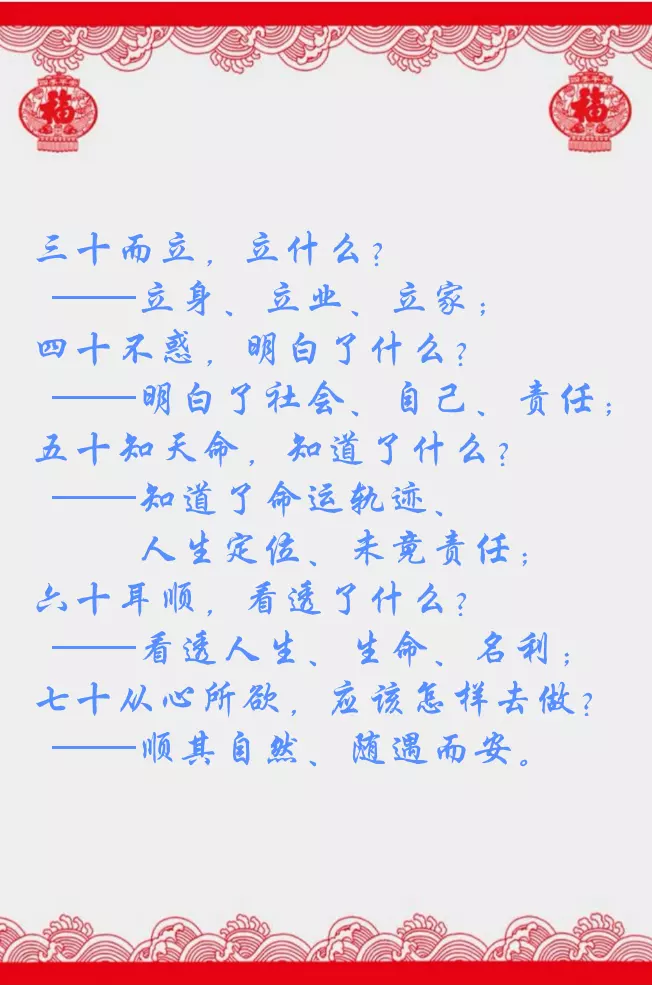 福
福
三十而立，立什么？
——立身、立业、立家；
四十不惑，明白了什么？
——明白了社会、自己、责任；
五十知天命，知道了什么？
——知道了命运轨迹、
人生定位、未竟责任；
六十耳顺，看透了什么？
——看透人生、生命、名利；
七十从心所欲，应该怎样去做？
——顺其自然、随遇而安。